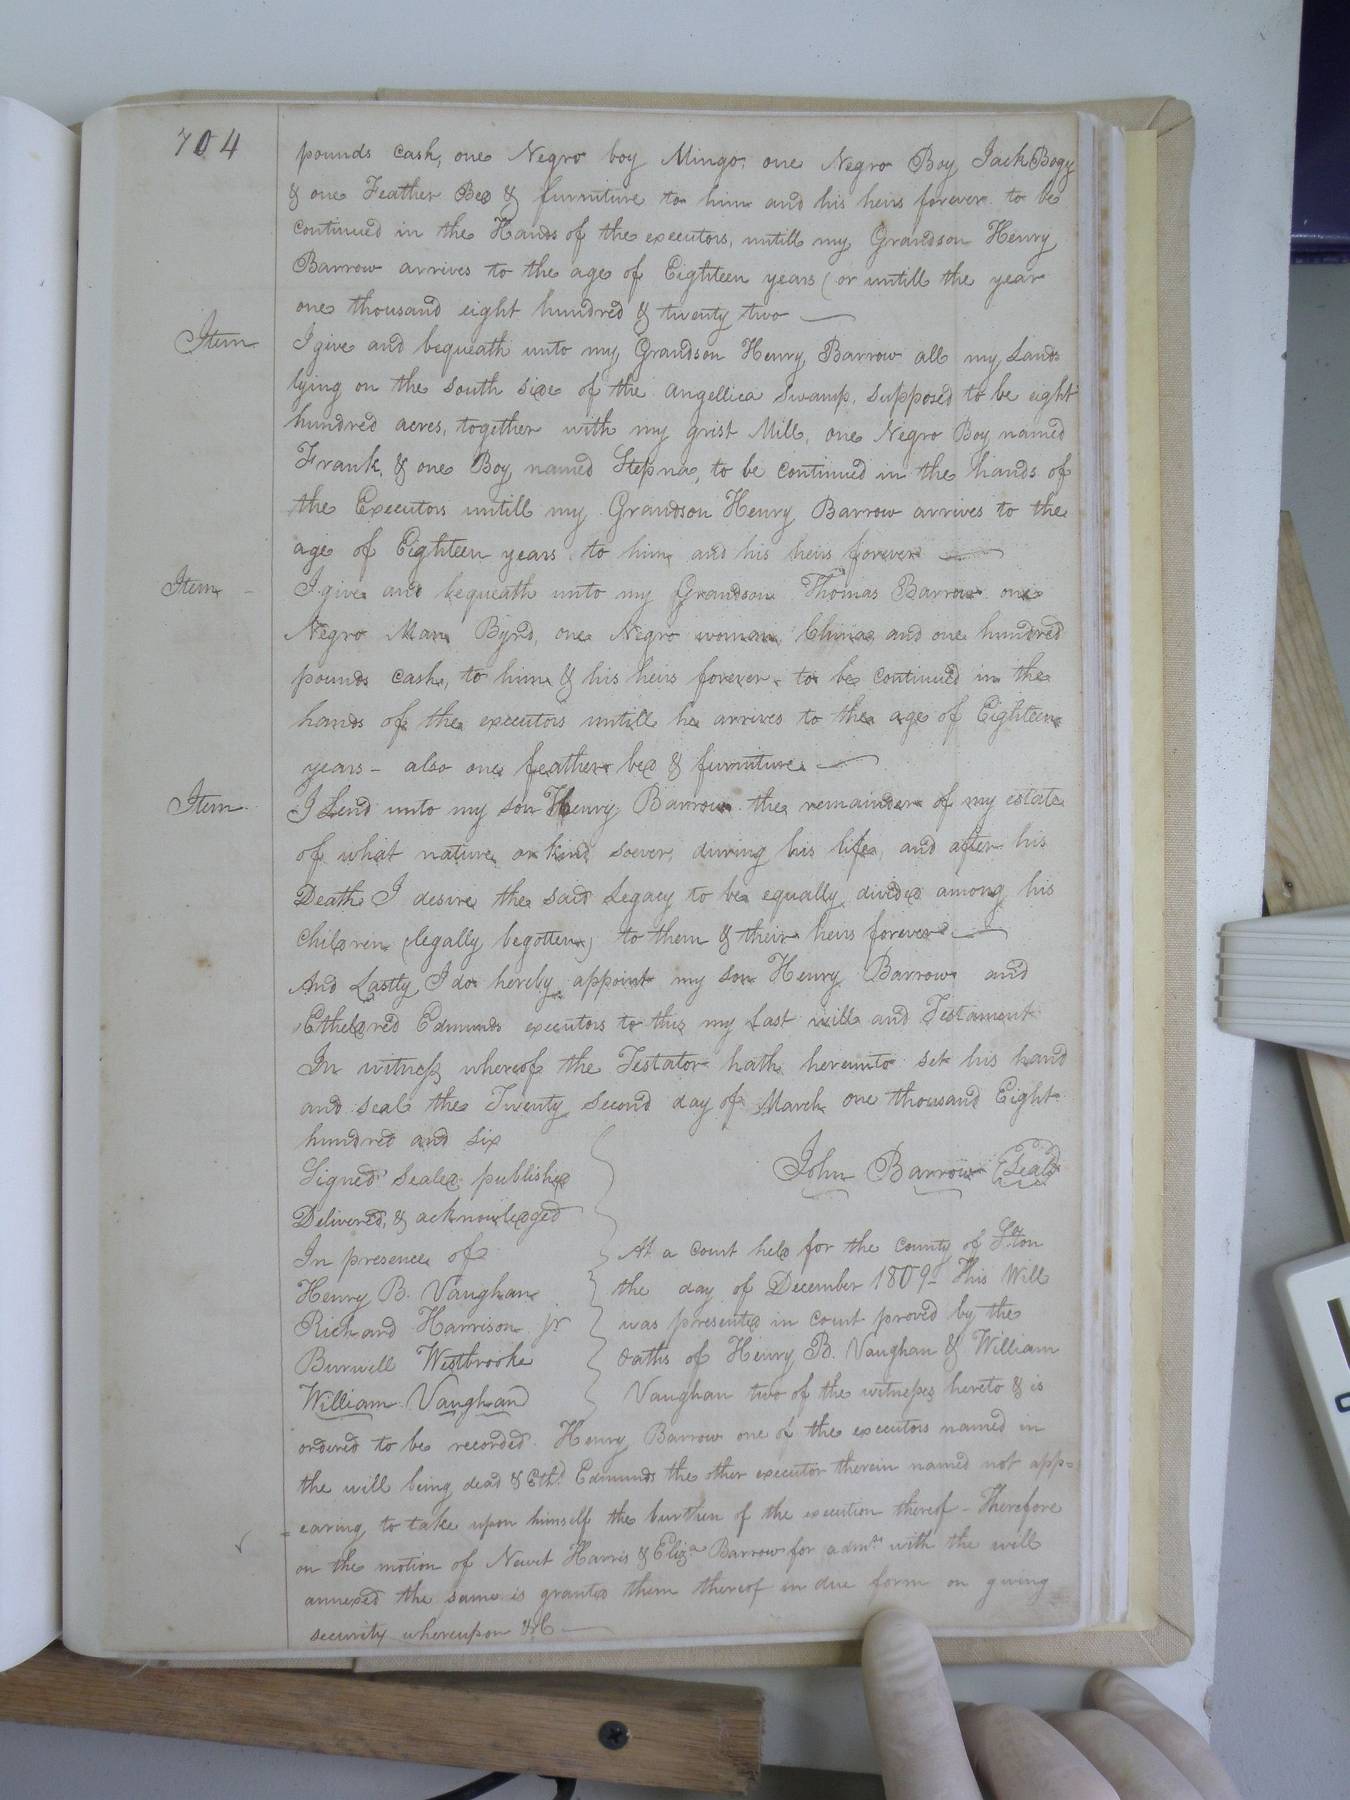 704
pounds cash, one Negro boy Mingo, one Negro Boy Jack Bogy
& one Feather Bed & furniture to him and his heirs forever. to be
continued in the Hands of the executors, untill my Grandson Henry
Barrow arrives to the age of Eighteen years (or untill the year
one thousand eight hundred & twenty two
Item I give and bequeath unto my Grandson Henry Barrow all my Lands
lying on the south side of the angellica Swamp, supposed to be eight
hundred acres, together with my grist Mill, one Negro Boy named
Frank, & one Boy named Stepna, to be continued in the hands of
the Executors untill my Grandson Henry Barrow arrives to the
age of Eighteen years to him and his heirs forever
Item - I give and bequeath unto my Grandson Thomas Barrow one
Negro Man Byrd, one Negro woman and one hundred
pounds cash, to him & his heirs forever. to be continued in the
hands of the executors untill he arrives to the age of Eighteen
years - also one feather bed & furniture.
Item I Lend unto my son Henry Barrow the remainder of my estate
of what nature or kind soever, during his life, and after his
Death I desire the said Legacy to be equally divided among his
children (legally begotten) to them & their heirs forever
And Lastly I do hereby appoint my son Henry Barrow and
Etheldred Edmunds executors to this my Last will and Testament
In witness whereof the Testator hath hereunto set his hand
and seal the Twenty Second day of March one thousand Eight
hundred and six
Signed Sealed published
John Barrow (Seal)
Delivered, & acknowledged
In presence of
Henry B. Vaughan
Richard Harrison jr
Burwell Westbrooke
William Vaughan
At a court held for the county of Stton
the day of December 1809 - This Will
was presented in court proved by the
oaths of Henry B. Vaughan & William
Vaughan two of the witnesses hereto & is
ordered to be recorded. Henry Barrow one of the executors named in
the will being dead & Ethd. Edmunds the other executor therein named not app=
=earing to take upon himself the burthen of the execution thereof - Therefore
on the motion of Newit Harris & Eliza Barrow for admn with the will
annexed the same is granted them thereof in due form on giving
security whereupon &C